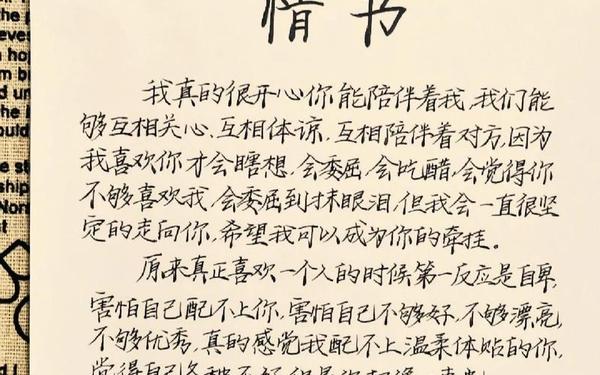 情书
我真的很开心你能陪伴着我,我们能
够互相关心、互相体谅,互相陪伴着对方,因为
我喜欢你才会瞎想,会委屈,会吃醋,会觉得你
不够喜欢我,会委屈到抹眼泪,但我会一直很坚
定的走向你,希望我可以成为你的牵挂。
原来真正喜欢一个人的时候第一反应是自卑,
害怕自己配不上你,害怕自己不够好,不够漂亮,
不够优秀,真的感觉我配不上温柔体贴的你,
觉得自己